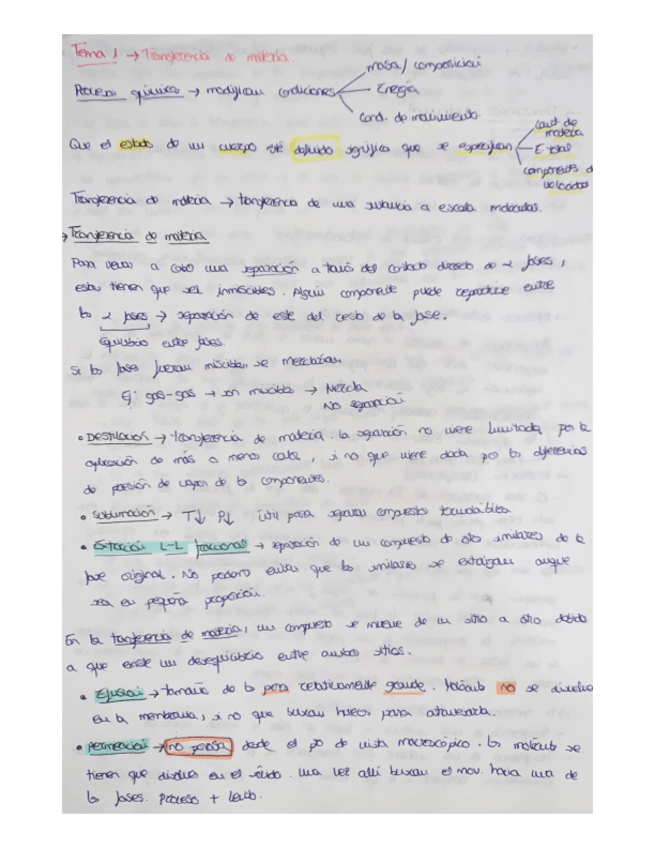 Tema 1 → Transferencia de materia.
Proceso químico → modifican condiciones
masa / composición
Energía
Cond. de movimiento.
Que el estado de un cuerpo esté definido significa que se especifican
cant. de materia
E total
components de velocidad
Transferencia de materia → transferencia de una sustancia a escala molecular.
→ Transferencia de materia
Para llevar a cabo una separación a través del contacto directo de 2 fases,
estas tienen que ser inmiscibles. Algún componente puede repartirse entre
las 2 fases → separación de este del resto de la fase.
Equilibrio entre fases.
Si las fases fueran miscibles, se mezclarían.
Ej: gas-gas → son miscibles → Mezcla
No separación
• Destilación → transferencia de materia. La separación no viene limitada por la
aplicación de más o menos calor, si no que viene dada por las diferencias
de presión de vapor de los componentes.
• Sublimación → T↓ P↓ útil para separar compuestos termolábiles
• Extracción L-L fraccional → separación de un compuesto de otros similares de la
fase original. No podemos evitar que los similares se extraigan aunque
sea en pequeña proporción.
En la transferencia de materia, un compuesto se mueve de un sitio a otro debido
a que existe un desequilibrio entre ambos sitios.
• Efusión → tamaño de los poros relativamente grande. Molécula no se disuelve
en la membrana, si no que buscan huecos para atravesarla.
• Permeación → no porosa desde el pto de vista macroscópico. Las moléculas se
tienen que disolver en el sólido. Una vez allí buscan el mov. hacia una de
las fases. Proceso + lento.